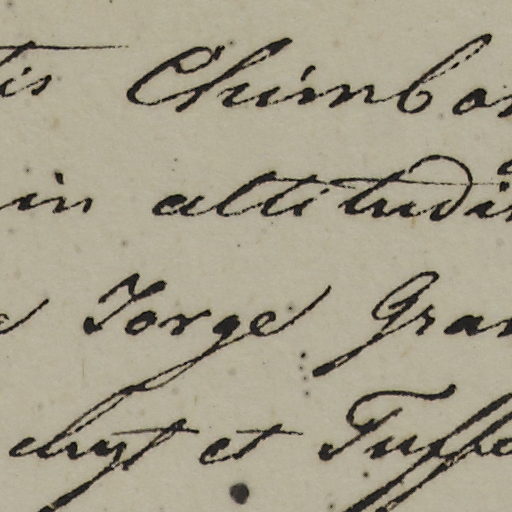 tis Chimbor
in altitudin
Jorge Gran
chyt et Tuffo